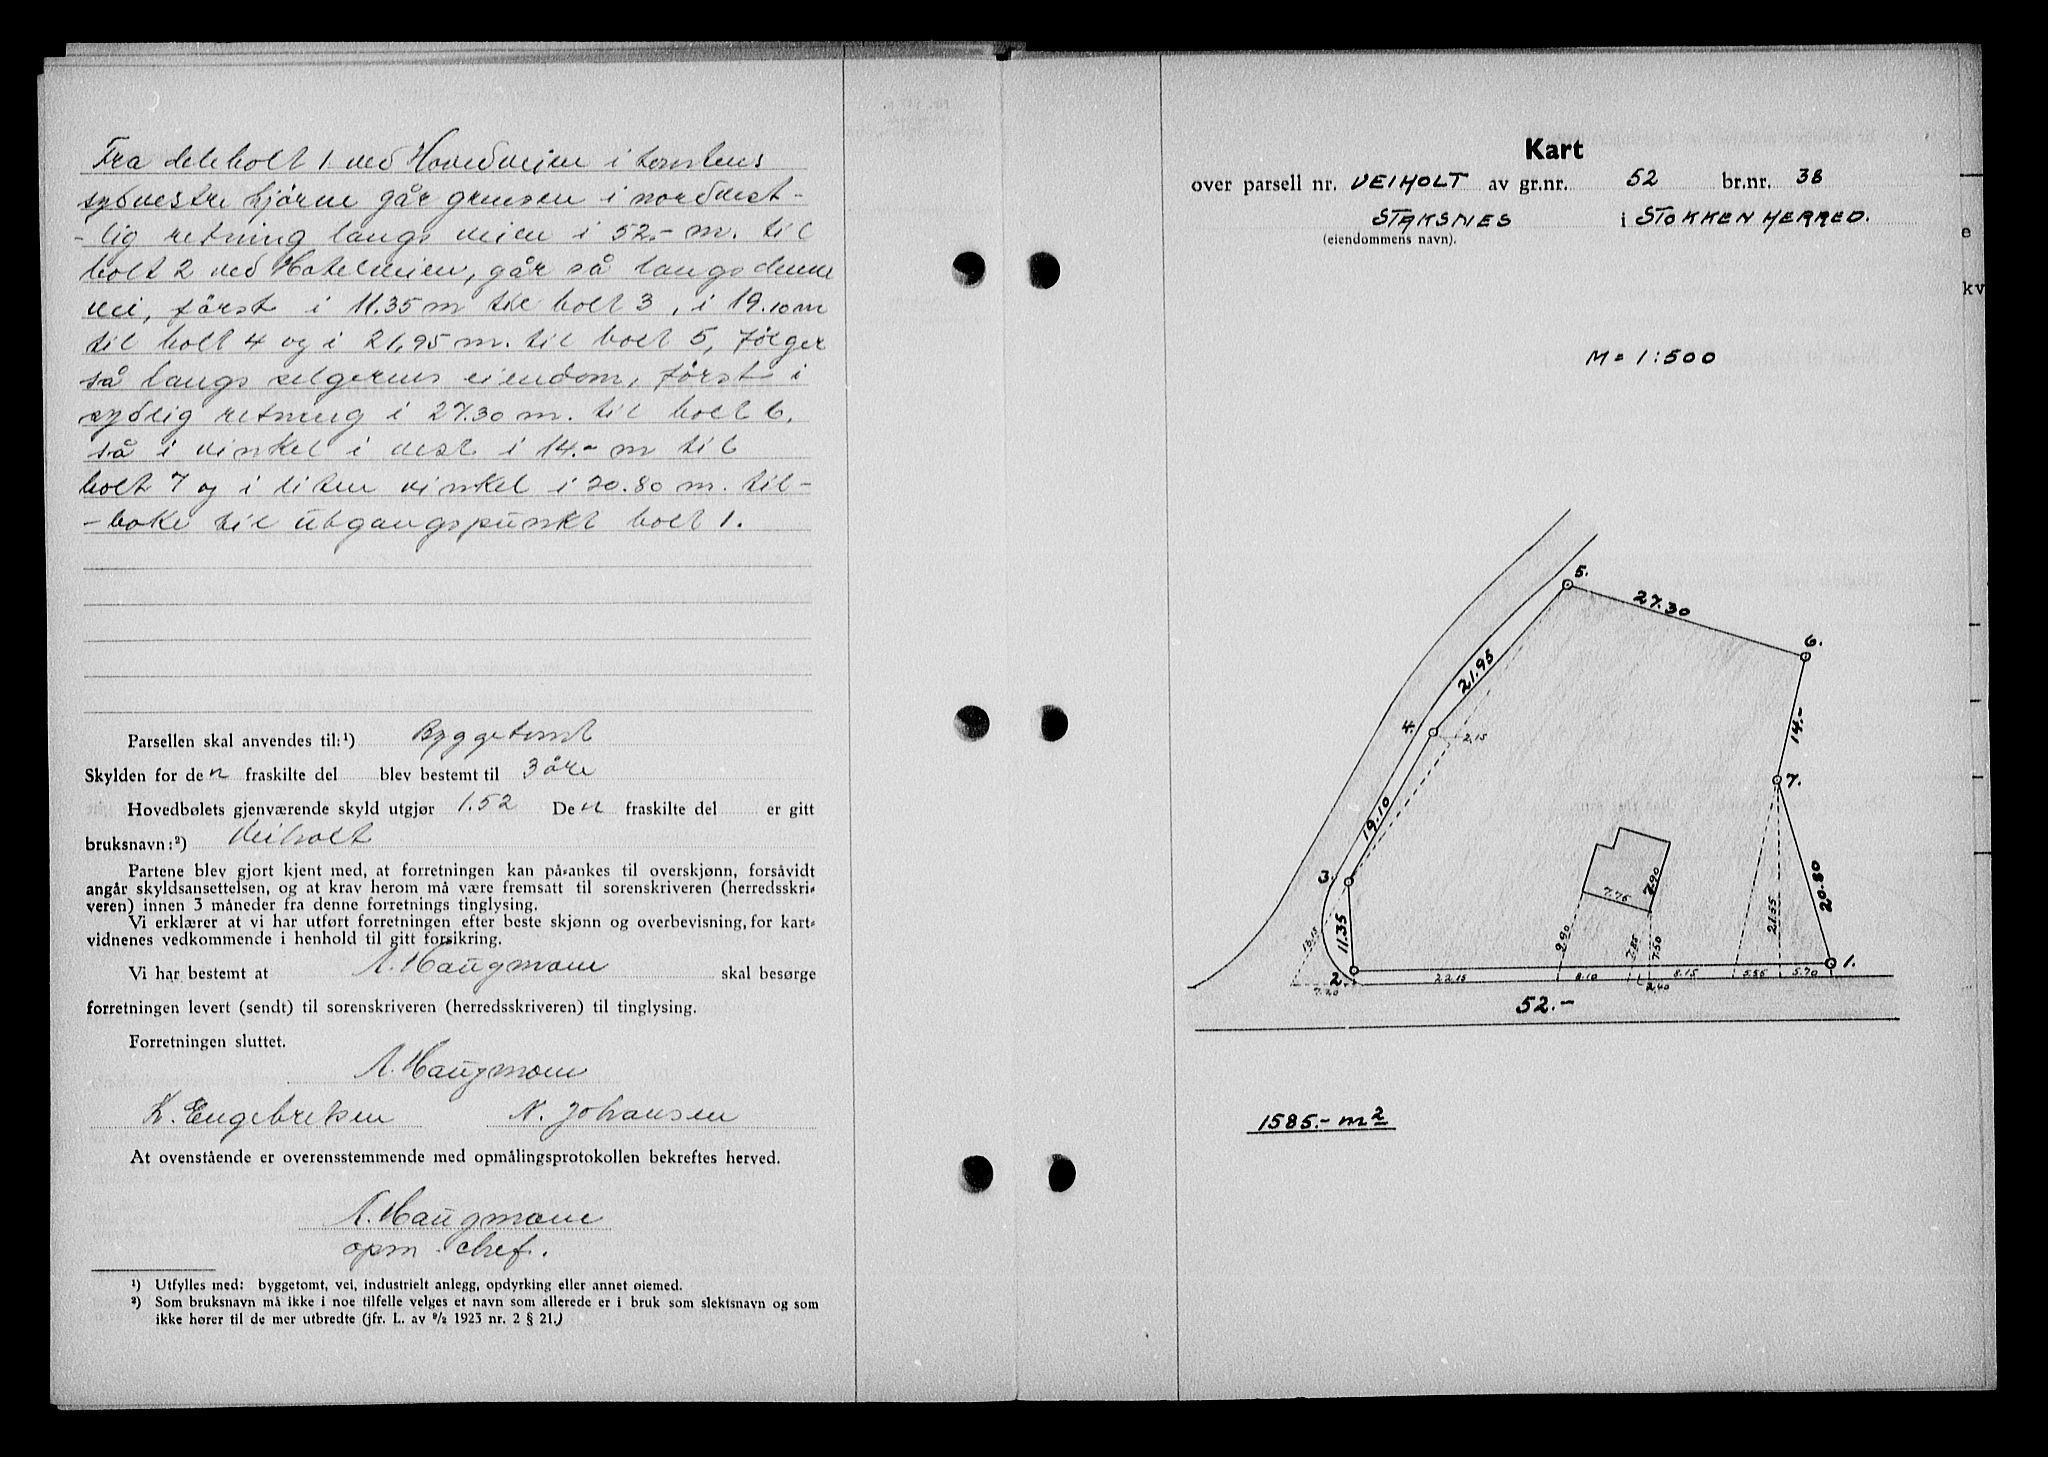 Fra delebolt 1 ved Hovedveien i tomtens
sydvestre hjørne går grensen i nordvest-
-lig retning langs veien i 52.- m. til
bolt 2 ved Hotelveien, går så langs denne
vei, først i 11.35 m til bolt 3, i 19.10 m
til bolt 4 og i 21,95 m. til bolt 5, Følger
så langs selgerens eiendom, først i
sydlig retning i 27.30 m. til bolt 6,
så i vinkel i vest i 14.- m til
bolt 7 og i liten vinkel i 20.80 m. til-
-bake til utgangspunkt bolt 1.
Parsellen skal anvendes til:¹) Byggetomt
Skylden for den fraskilte del blev bestemt til 3 øre
Hovedbølets gjenværende skyld utgjør 1.52 Den fraskilte del er gitt
bruksnavn:²) Veiholt
Partene blev gjort kjent med, at forretningen kan på-ankes til overskjønn, forsåvidt
angår skyldsansettelsen, og at krav herom må være fremsatt til sorenskriveren (herredsskri-
veren) innen 3 måneder fra denne forretnings tinglysing.
Vi erklærer at vi har utført forretningen efter beste skjønn og overbevisning, for kart-
vidnenes vedkommende i henhold til gitt forsikring.
Vi har bestemt at A. Haugmoen skal besørge
forretningen levert (sendt) til sorenskriveren (herredsskriveren) til tinglysing.
Forretningen sluttet.
A. Haugmoen
K. Engebretsen N. Johansen
At ovenstående er overensstemmende med opmålingsprotokollen bekreftes herved.
A. Haugmoen
opm. chef.
¹) Utfylles med: byggetomt, vei, industrielt anlegg, opdyrking eller annet øiemed.
²) Som bruksnavn må ikke i noe tilfelle velges et navn som allerede er i bruk som slektsnavn og som
ikke hører til de mer utbredte (jfr. L. av ⁹/₂ 1923 nr. 2 § 21.)
Kart
over parsell nr. VEIHOLT av gr.nr. 52 br.nr. 38
STAKSNES i STOKKEN HERRED.
(eiendommens navn).
e
kv
M = 1:500
5.
27.30
6.
21.95
4.
2,15
14.-
7.
19.10
3.
7.75
7.90
20.80
21.55
11.35
13,15
9.90
7.85
7.50
2.
1.
7.20
22.15
8.10
2,40
8.15
5.55
5.70
52.-
1585.- m²